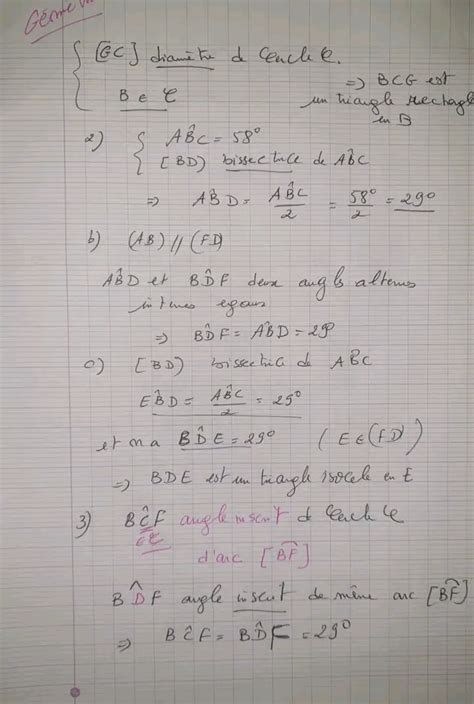 Géome
[GC] diamètre de Cercle C.
B ∈ C
=> BCG est
un triangle rectangle
en B
2) AB̂C = 58°
[BD) bissectrice de AB̂C
=> AB̂D = AB̂C/2 = 58°/2 = 29°
b) (AB) // (FD)
AB̂D et BD̂F deux angls alternes
internes egaux
=> BD̂F = AB̂D = 29°
c) [BD) bissectrice de AB̂C
EB̂D = AB̂C/2 = 29°
et on a BD̂E = 29° (E ∈ (FD))
=> BDE est un triangle isocele en E
3) BĈF angle inscrit d Cercle C
∈ C
d'arc [BF]
BD̂F angle inscrit de même arc [BF]
=> BĈF = BD̂F = 29°